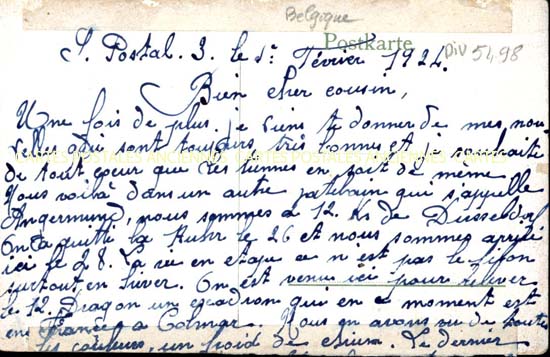 Belgique
Postkarte
Div 5498
S. Postal. 3. le 1r Février 1924.
Bien cher cousin,
Une fois de plus, je viens te donner de mes nou
velles qui sont toujours très bonnes et je souhaite
CARTES POSTALES ANCIENNES CARTES POSTALES ANCIENNES CARTES
de tout coeur que les tiennes en soit de même
Nous voilà dans un autre patelain qui s'appelle
Angermund, nous sommes a 12. Ks de Dusseldorf
On a quitté la Ruhr le 26 et nous sommes arrivé
ici le 28. La vie en etape ce n'est pas le filon
surtout en hiver. On est venus ici pour relever
le 12. Dragon un escadron qui en ce moment est
en France a Colmar. Nous en avons vu de toutes
les couleurs, un froid de chien. Le dernier